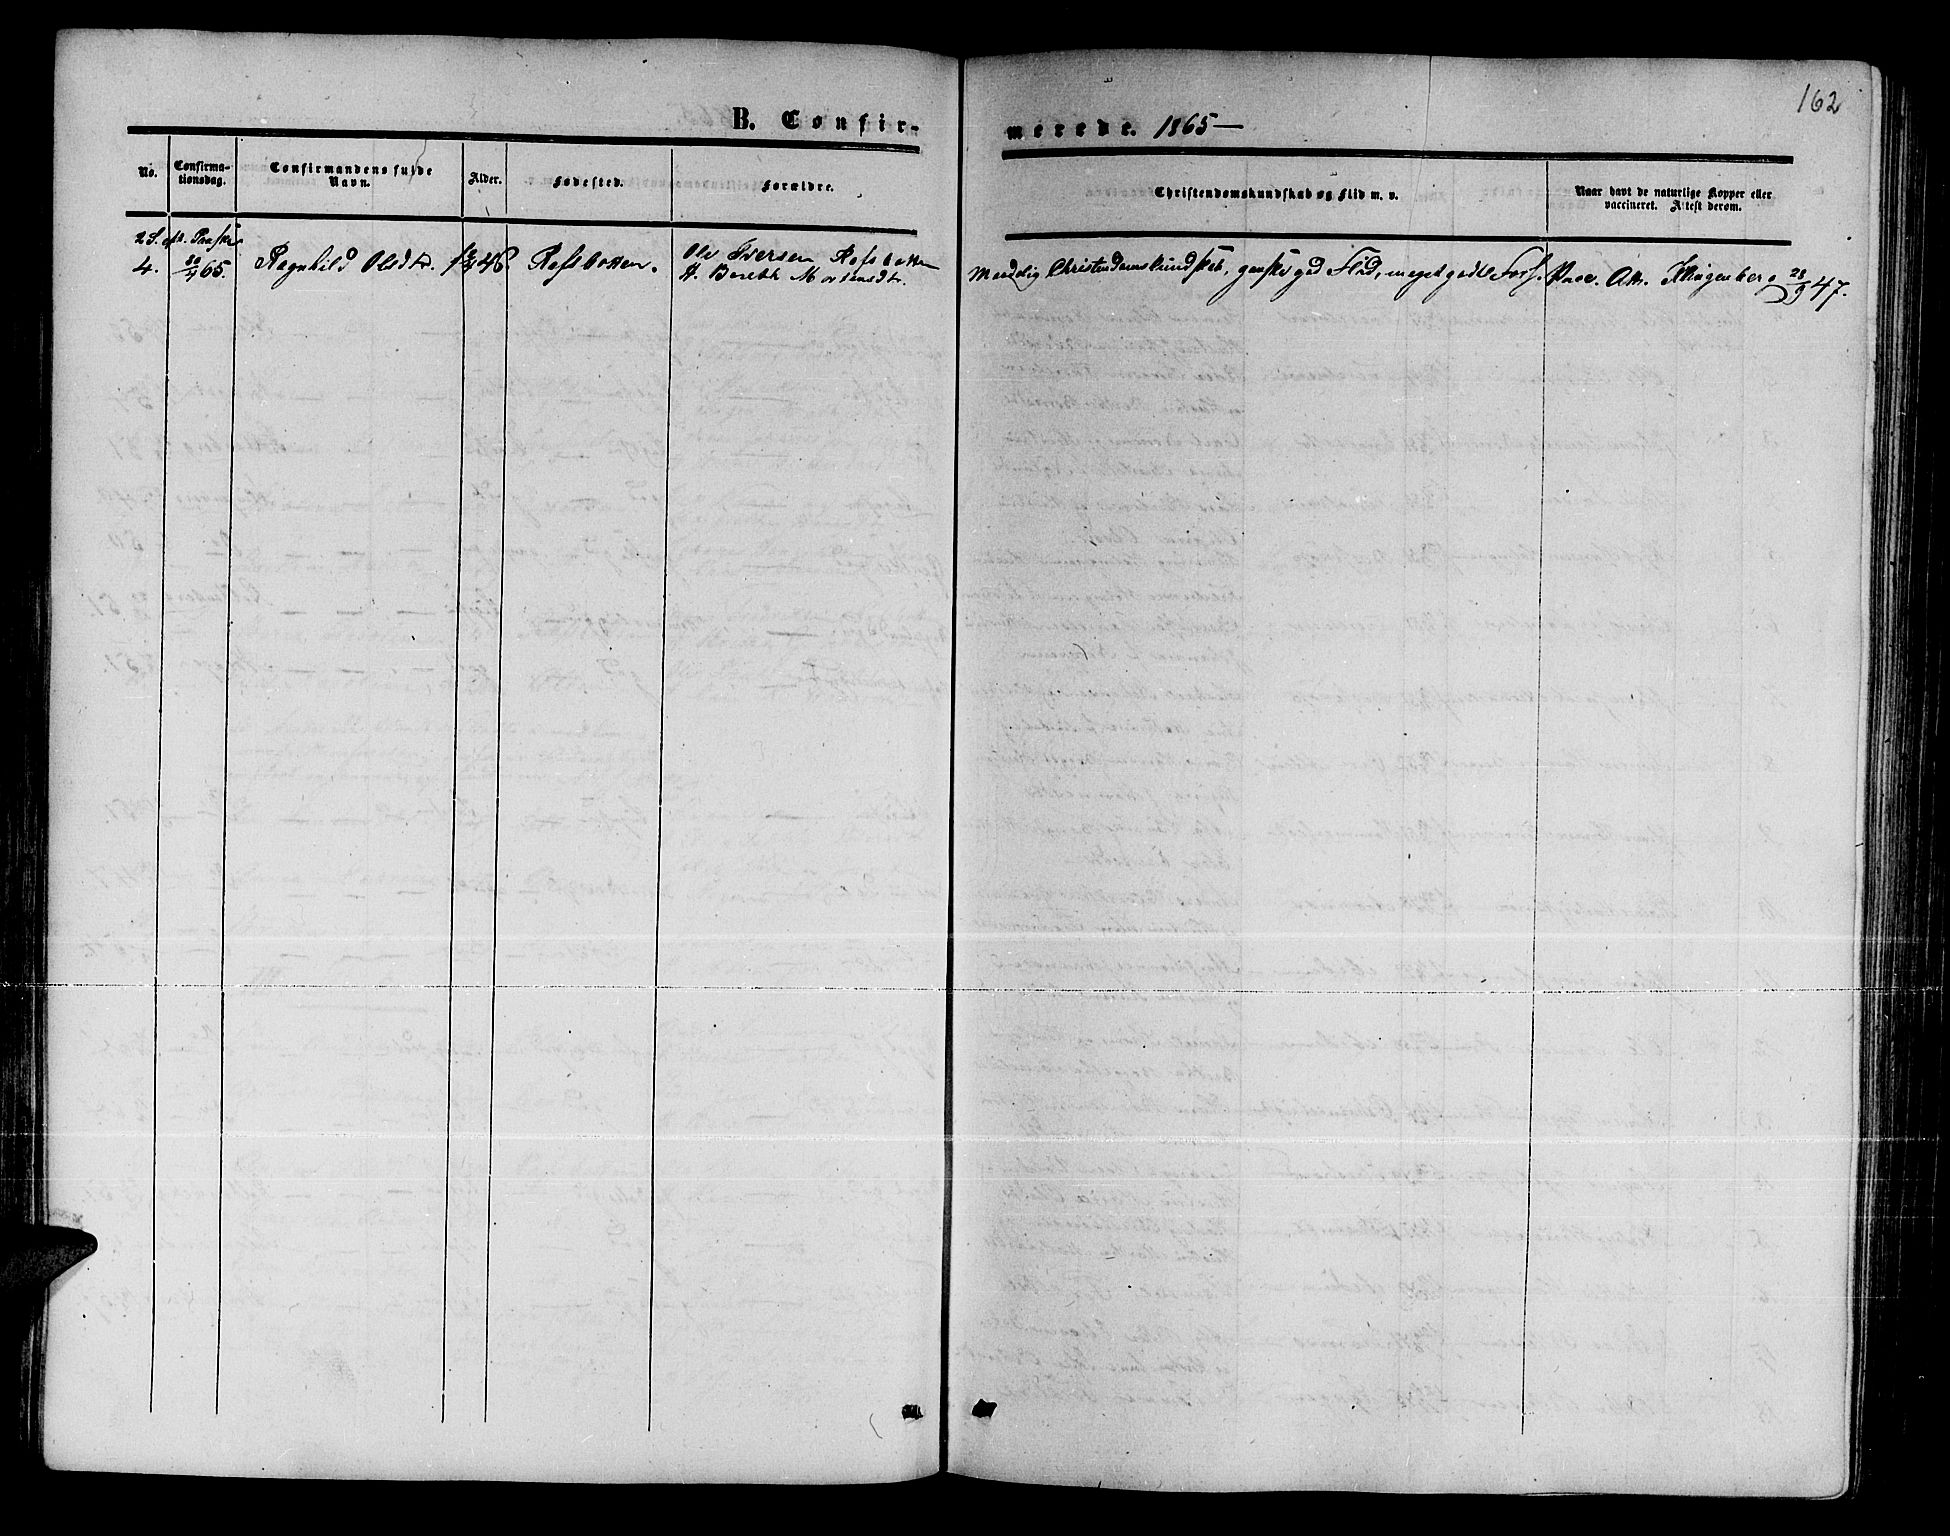 162
B. Confirmerede. 1865 —
No.
Confirma-
tionsdag.
Confirmandens fulde
Navn.
Alder.
Fødested.
Forældre.
Christendomskundskab og Flid m. v.
Naar havt de naturlige Kopper eller
vaccineret. Attest derom.
2 S. eft. Paaske
4. 30/4 65. Ragnhild Olsdtr. Rossbotten. Ole Iversen Rossbotten
H. Bereth Mortensdtr.
Maadelig Christendomskundskab, ganske god Flid, meget godt Forh. Vacc. Att. Klingenberg 28/9 47.